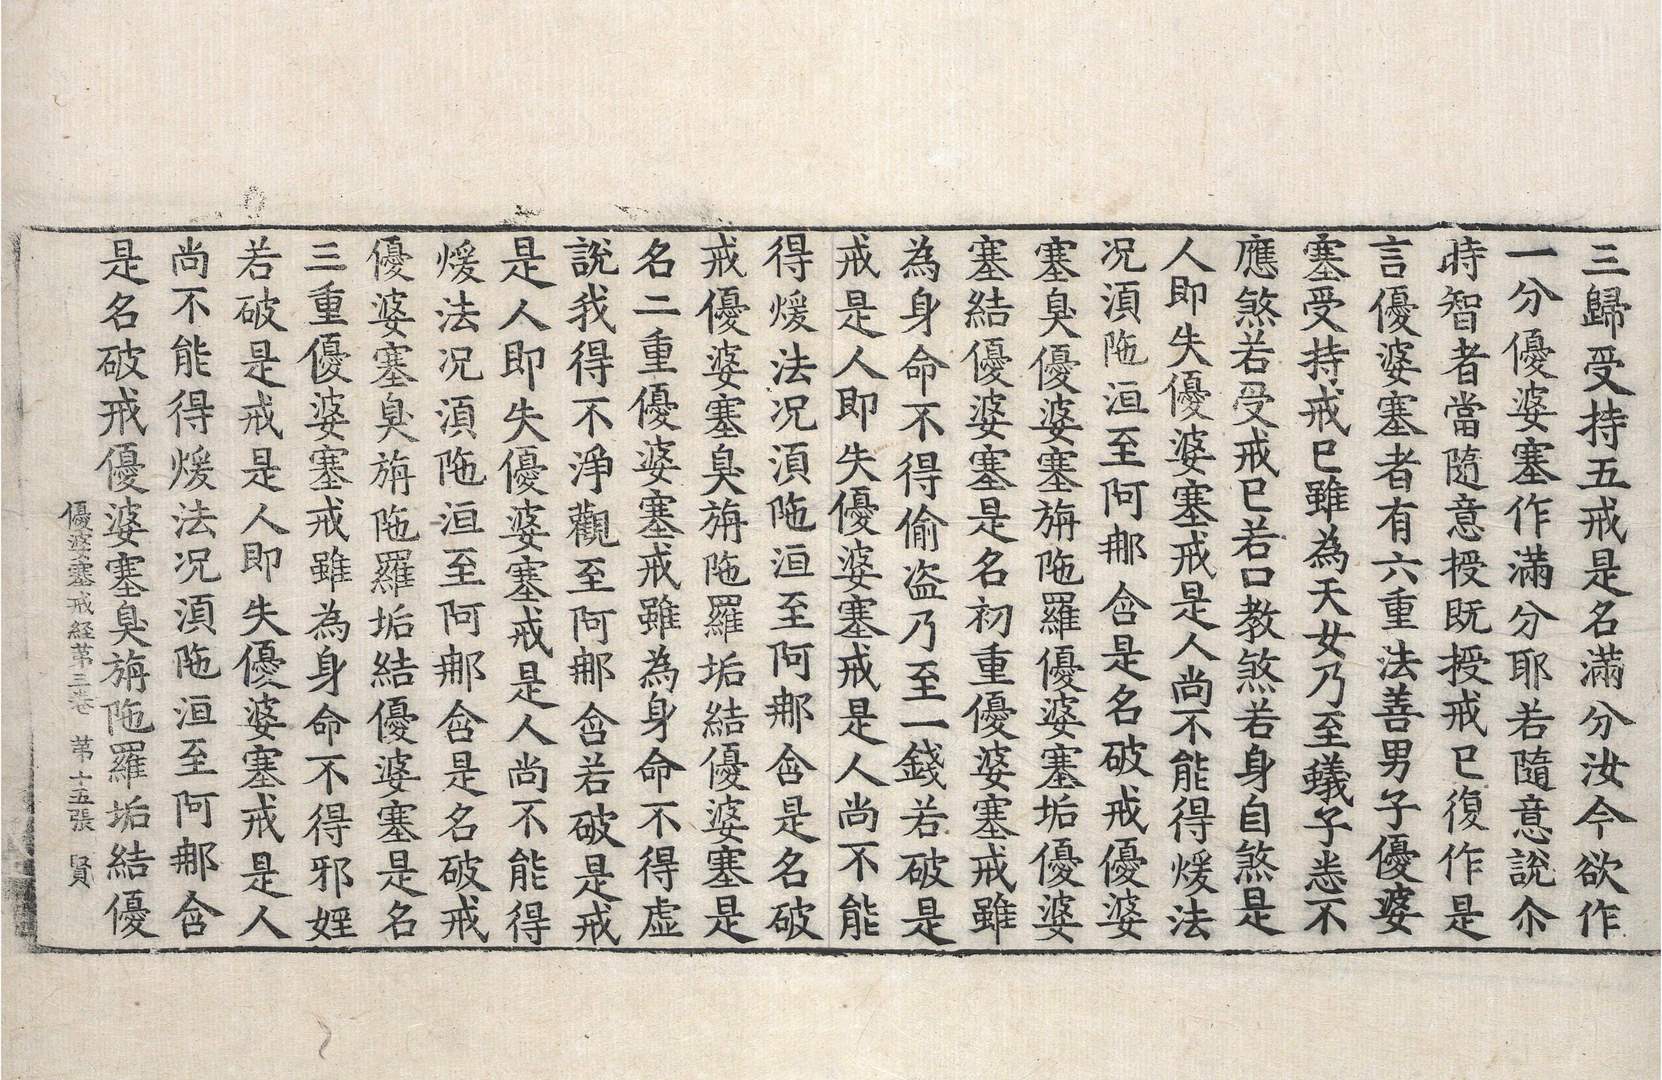 三歸受持五戒是名滿分汝今欲作
一分優婆塞作滿分耶若隨意說尒
時智者當隨意授旣授戒已復作是
言優婆塞者有六重法善男子優婆
塞受持戒已雖為天女乃至蟻子悉不
應煞若受戒已若口教煞若身自煞是
人即失優婆塞戒是人尚不能得煖法
况湏陁洹至阿䣍含是名破戒優婆
塞臭優婆塞旃陁羅優婆塞垢優婆
塞結優婆塞是名初重優婆塞戒雖
為身命不得偷盗乃至一錢若破是
戒是人即失優婆塞戒是人尚不能
得煖法况湏陁洹至阿䣍含是名破
戒優婆塞臭旃陁羅垢結優婆塞是
名二重優婆塞戒雖為身命不得虛
說我得不淨觀至阿䣍含若破是戒
是人即失優婆塞戒是人尚不能得
煖法况湏陁洹至阿䣍含是名破戒
優婆塞臭旃陁羅垢結優婆塞是名
三重優婆塞戒雖為身命不得邪婬
若破是戒是人即失優婆塞戒是人
尚不能得煖法况湏陁洹至阿䣍含
是名破戒優婆塞臭旃陁羅垢結優
優婆塞戒経苐三卷 苐十五張 賢